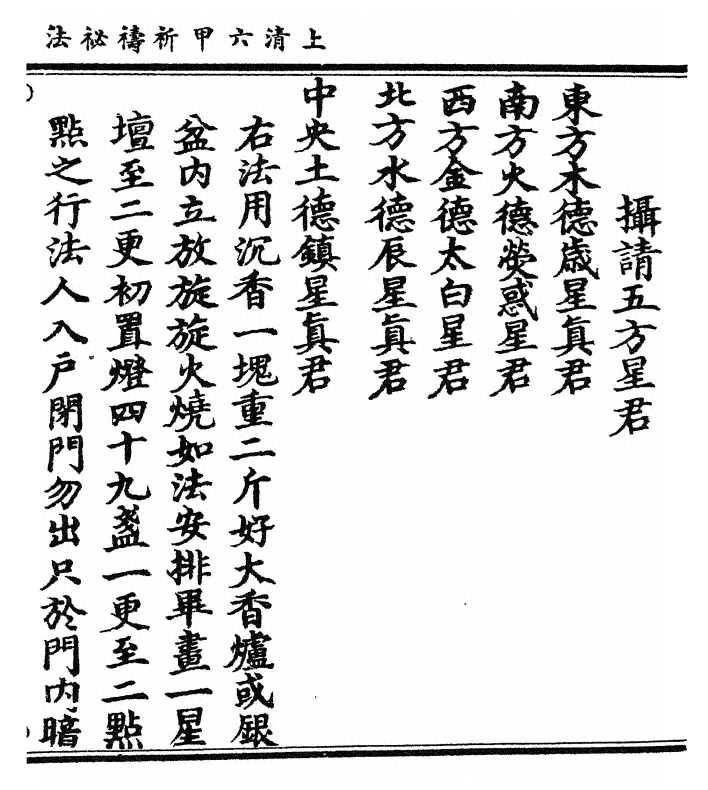 上清六甲祈禱祕法
攝請五方星君
東方木德歳星真君
南方火德熒惑星君
西方金德太白星君
北方水德辰星真君
中央土德鎮星真君
右法用沉香一塊重二斤好大香爐或銀
盆内立放旋旋火燒如法安排畢畫一星
壇至二更初置燈四十九盞一更至二點
點之行法人入戶閉門勿出只於門内暗